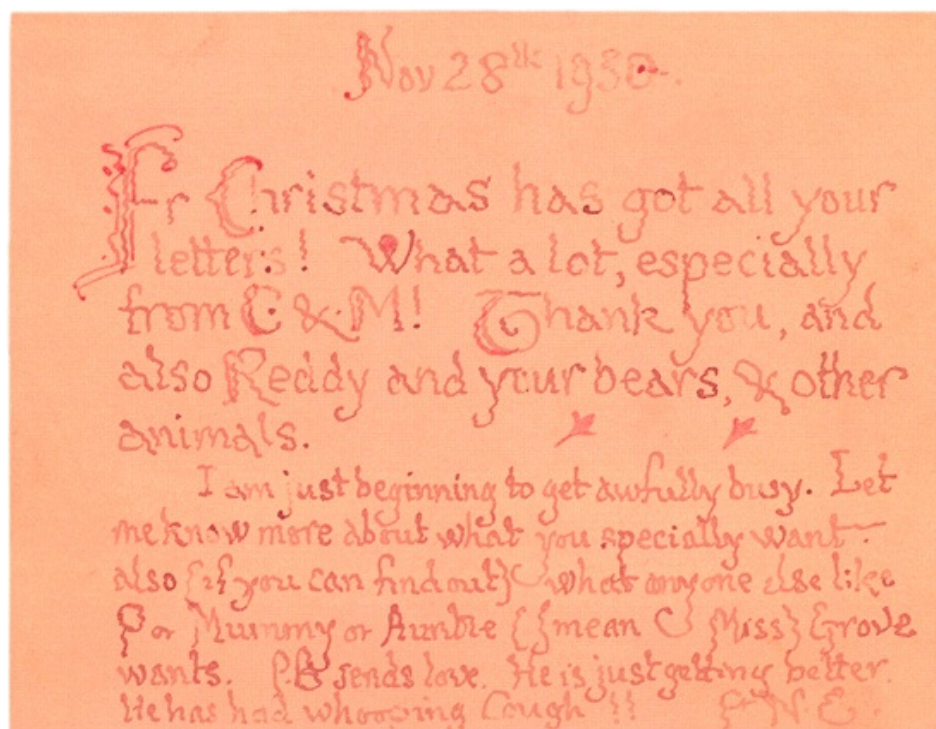 Nov 28th 1930.
Fr Christmas has got all your
letters! What a lot, especially
from C & M! Thank you, and
also Reddy and your bears, & other
animals.
I am just beginning to get awfully busy. Let
me know more about what you specially want –
also {if you can find out} what anyone else like
P or Mummy or Auntie {I mean Miss} Grove
wants. P.B sends love. He is just getting better.
He has had whooping Cough !!